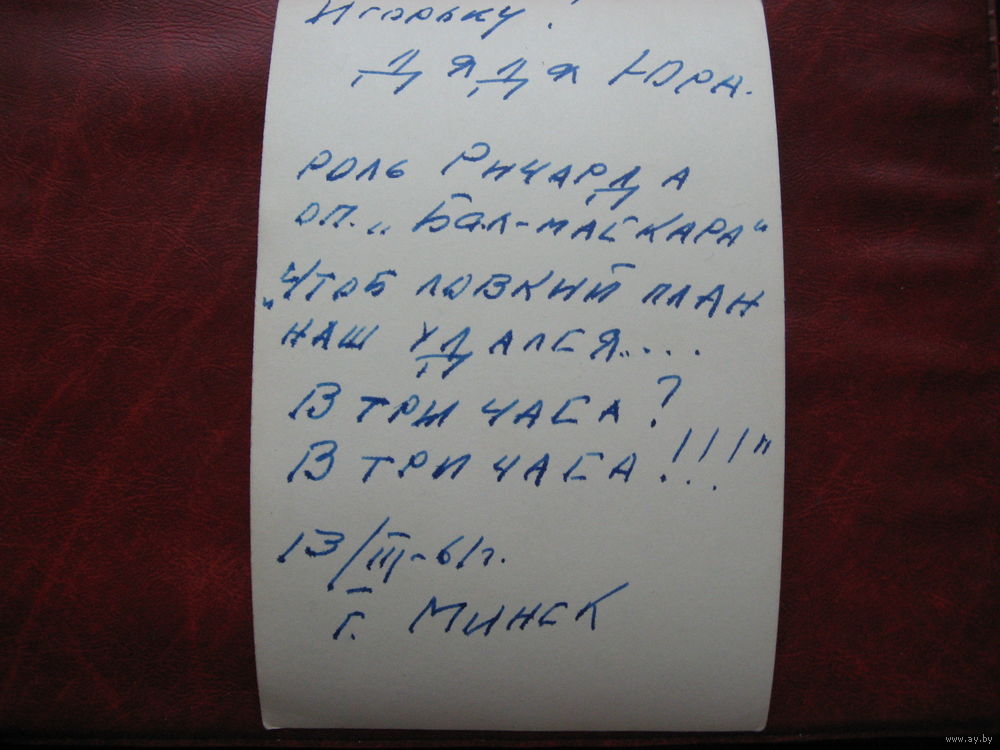 Игорьку!
Дядя Юра.
роль Ричарда
оп. „Бал-маскарад“
„Чтоб ловкий план
наш удался.....
В три часа?
В три часа!!!"
13/III-61г.
г. Минск
www.ay.by